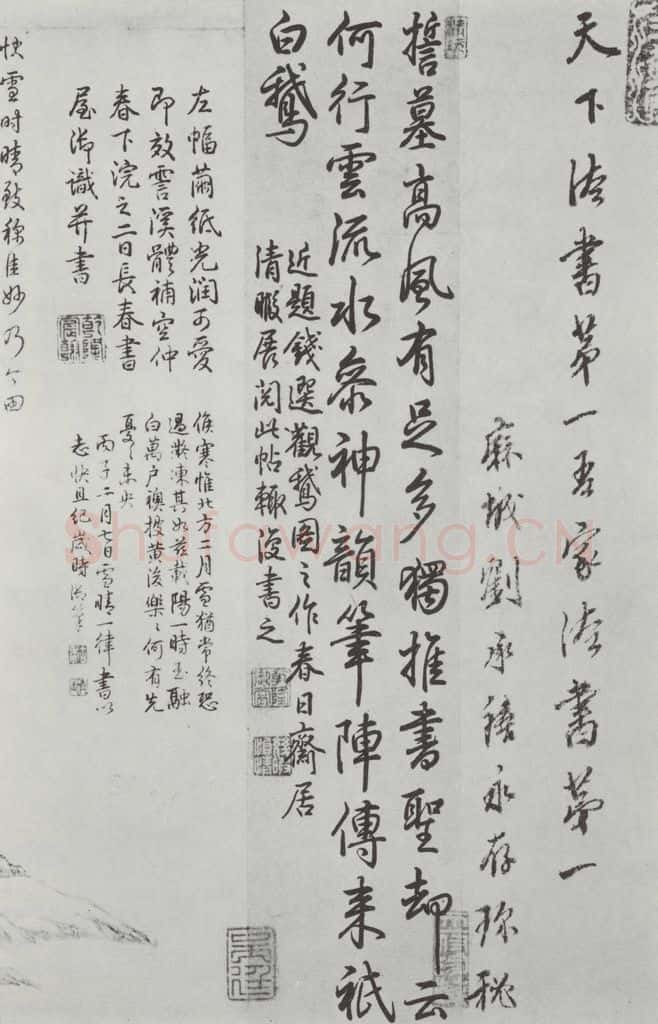 天下法書第一吾家法書第一
麻城劉承禧永存珍秘
誓墓高風有足多獨推書聖却云
何行雲流水參神韻筆陣傳来祗
白鵝
近題錢選觀鵝圖之作春日齋居
清暇展閱此帖輒復書之
左幅繭紙光潤可愛
即效霅溪體補空仲
春下浣之二日長春書
屋御識并書
乾隆
宸翰
候寒惟北方二月雪猶常終恐
過凝凍其如益載陽一時玉融
白萬户襖披黄後樂樂何有先
憂憂未央
丙子二月七日雪晴一律書以
志快且紀歲時御筆
快雪时晴致稱佳妙乃今
Shufawang.CN